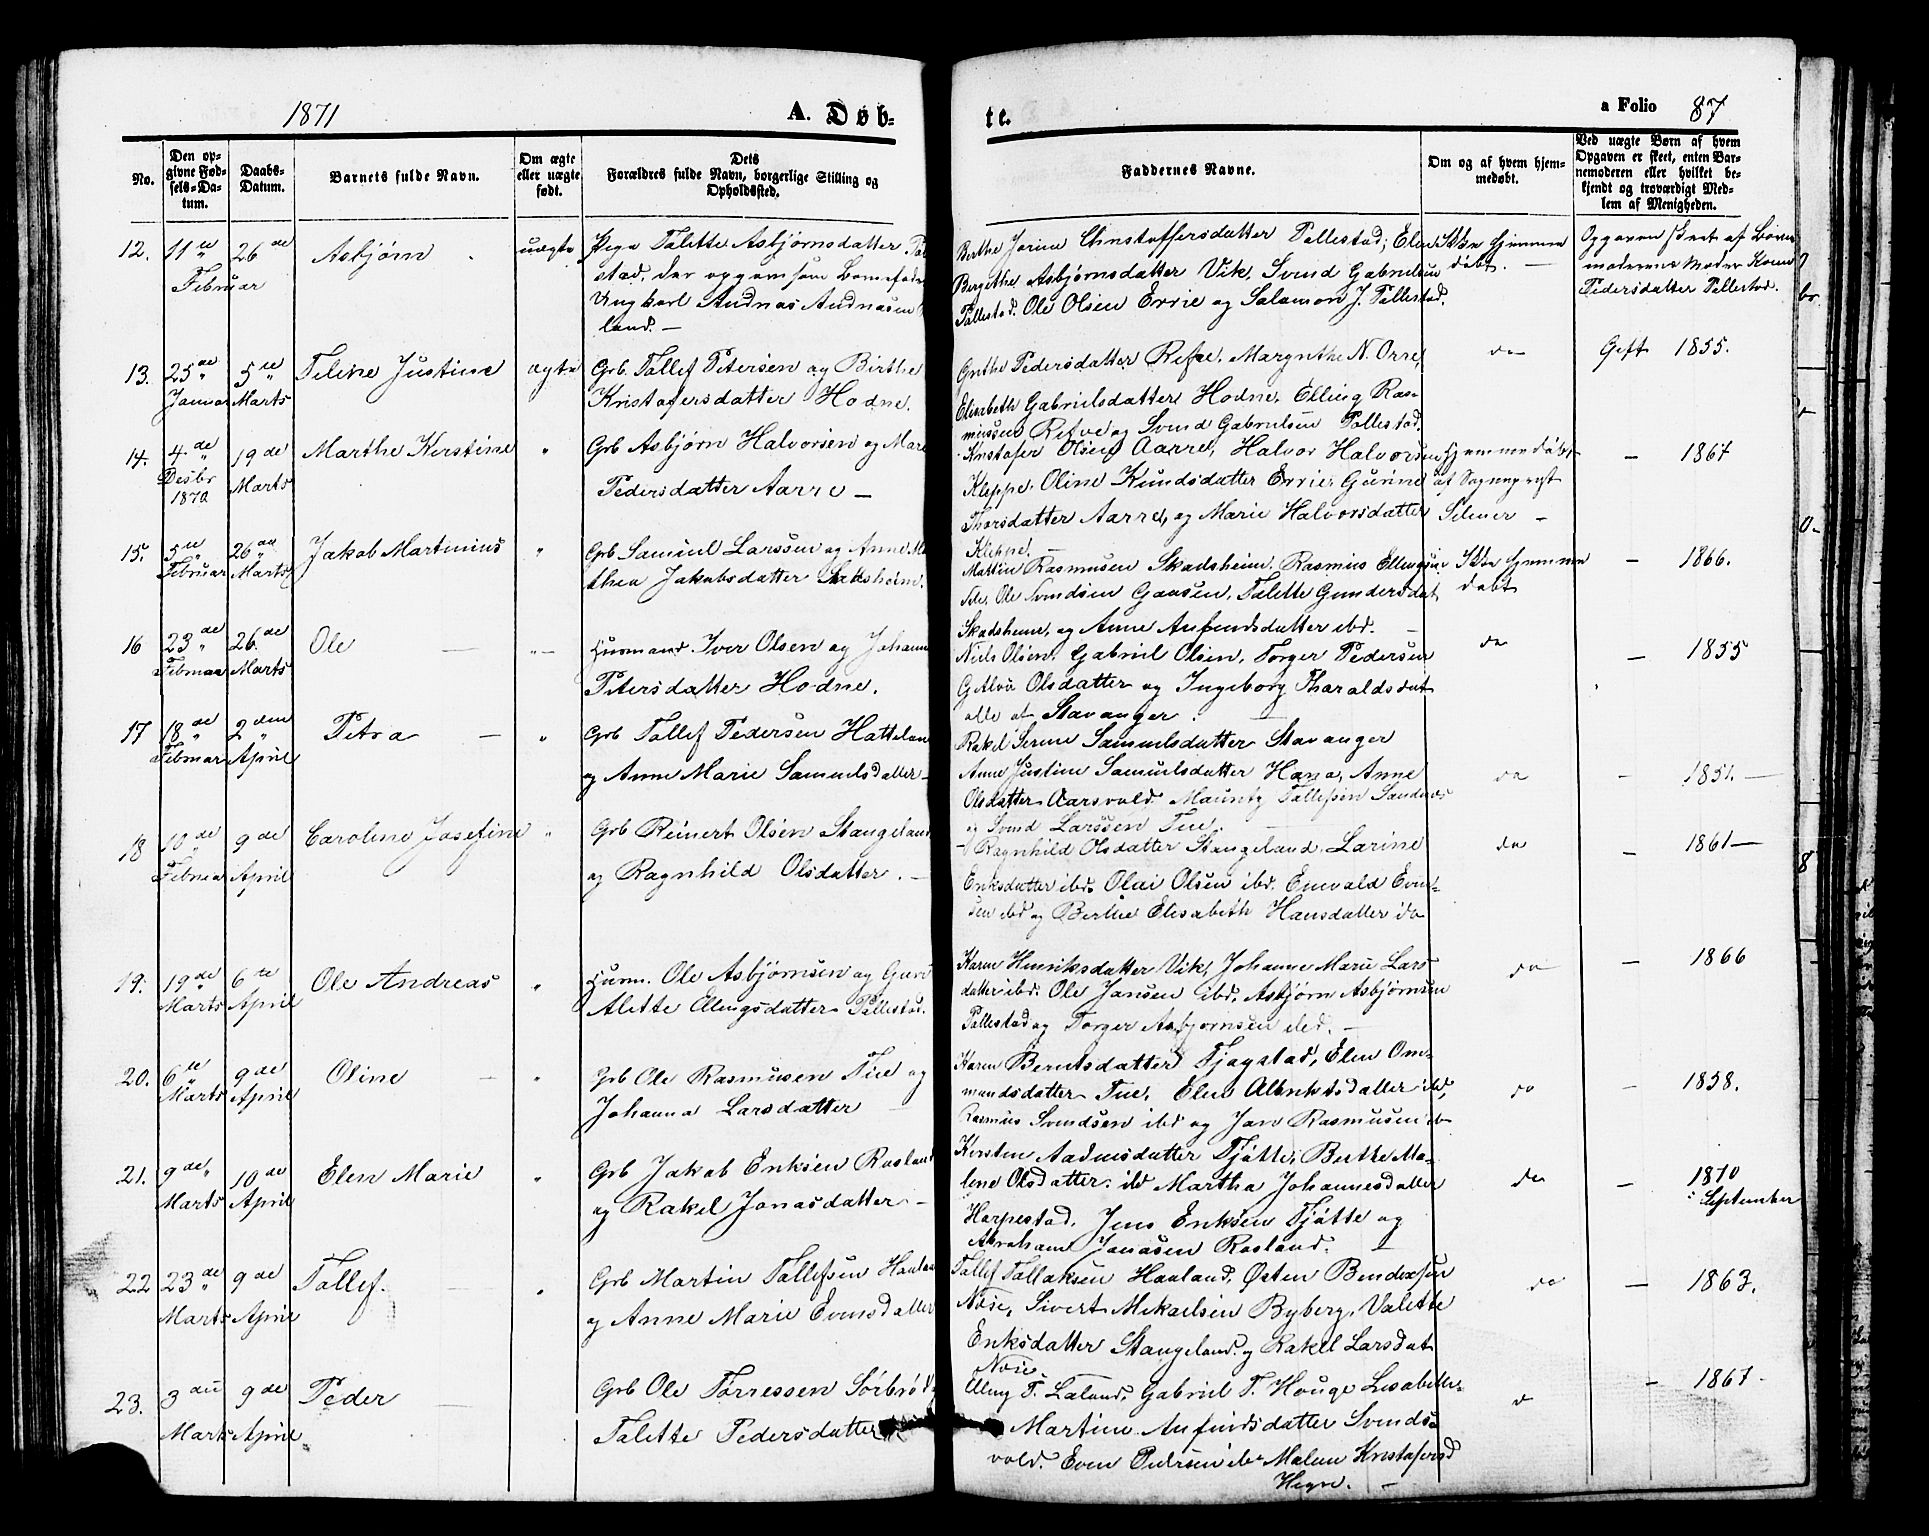 1871
A. Døb-
te.
a Folio 87
No.
Den op-
givne Fød-
sels-Da-
tum.
Daabs-
Datum.
Barnets fulde Navn.
Om ægte
eller uægte
født.
Dets
Forældres fulde Navn, borgerlige Stilling og
Opholdssted.
Faddernes Navne.
Om og af hvem hjem-
medøbt.
Ved uægte Børn af hvem
Opgaven er skeet, enten Bar-
nemoderen eller hvilket be-
kjendt og troværdigt Med-
lem af Menigheden.
12. 11te 26de Asbjørn uægte Pige Talette Asbjørnsdatter
Februar
stad, der opgav som Barnefader
Ungkarl Andreas Andreasen
land. —
Berthe Jorine Christoffersdatter Tallestad; Elen
Bergithe Asbjørnsdatter Vik, Svend Gabrielsen
Tallestad. Ole Olsen Errie og Salamon J. Tallestad.
Ikke hjemme
døbt. —
Opgaven skeet af Barne
moderens Moder Karen
Pedersdatter Tallestad.
13. 25de 5te Teline Justine ægte Grb. Tallef Petersen og Birthe
Januar Marts Kristofersdatter Hodne.
Grethe Pedersdatter Refve, Margrethe N. Orre,
Elisabeth Gabrielsdatter Hodne, Elling Ras-
mussen Refve og Svend Gabrielsen Tallestad.
do Gift 1855.
14. 4de 19de Marthe Kirstine " Grb Asbjørn Halvorsen og Mare
Desbr Marts Pedersdatter Aarre —
1870
Kristofer Olsen Aarre, Halvor Halvorsen
Kleppe, Oline Knudsdatter Errie, Gurine
Thorsdatter Aarre, og Marie Halvorsdatter
Kleppe. —
Hjemmedøbt
af Sognepræst
Selmer —
— 1867
15. 5te 26de Jakob Martinius " Grb Samuel Larssen og Anne Ma
Februar Marts thea Jakobsdatter Skadsheim.
Martin Rasmusen Skadsheim, Rasmus Ellingsen
Tele, Ole Svendsen Gausen, Talette Gundersdat
Skadsheim, og Anne Anfindsdatter ibd. —
Ikke hjemme
døbt
— 1866.
16 23de 26de Ole — " — Husmand Iver Olsen og Johann
Februar Marts Petersdatter Hodne.
Niels Olsen, Gabriel Olsen, Torger Pedersen
Olsdatter og Ingeborg Tharaldsdat
alle af Stavanger. —
do — 1855
17 18de 2den Petra — " Grb Tallef Pedersen Hattelan
Februar April og Anne Marie Samuelsdatter —
Rakel Serine Samuelsdatter Stavanger
Anne Justine Samuelsdatter Hana, Anne
Olsdatter Aarsvold. Mauritz Tallefsen Sandnes
og Svend Larssen Tue. —
do — 1851. —
18 10de 9de Caroline Josefine " Grb Reinert Olsen Stangeland
Februar April og Ragnhild Olsdatter. —
Ragnhild Olsdatter Stangeland, Larine
Eriksdatter ibd. Olai Olsen ibd. Enevald Even-
sen ibd og Berthe Elisabeth Hansdatter ibd
do — 1861 —
19. 19de 6te Ole Andreas " Husm. Ole Asbjørnsen og Guri
Marts April Alette Ellingsdatter Tallestad.
Karen Henriksdatter Vik, Johanne Marie Lars
datter ibd. Ole Jansen ibd, Asbjørn Asbjørnsen
Tallestad og Torger Asbjørnsen ibd. —
do — 1866
20. 6te 9de Oline — " Grb Ole Rasmusen Tue og
Marts April Johanna Larsdatter —
Karen Berntsdatter Tjaystad, Elen Om-
mundsdatter Tue, Elen Albriktsdatter ibd,
Rasmus Svendsen ibd og Jan Rasmusen ibd
do — 1858.
21. 9de 10de Elen Marie " Grb Jakob Eriksen Rosland
Marts April og Rakel Jonasdatter —
Kirsten Aadnesdatter Tjøtte, Berthe Ma-
lene Olsdatter ibd Martha Johannesdatter
Harpestad, Jens Eriksen Tjøtte og
Abraham Jonasen Rosland. —
do — 1870
i September
22 23de 9de Tallef. — " Grb Martin Tallefsen Haaland
Marts April og Anne Marie Evensdatter
Tallef Tallaksen Haaland, Østen Bendixsen
Nøse, Sivert Mikaelsen Byberg, Valette
Eriksdatter Stangeland og Rakel Larsdat
Nøse —
do — 1863.
23. 3die 9de Peder — Grb Ole Tørressen Sørbrød
Marts April Talette Pedersdatter
Elling T. Laland, Gabriel T. Houge Lisabeth
Martine Anfindsdatter Svends-
vold. Even Pedersen ibd Malene Kristofersd
Hegre. —
d — 1867